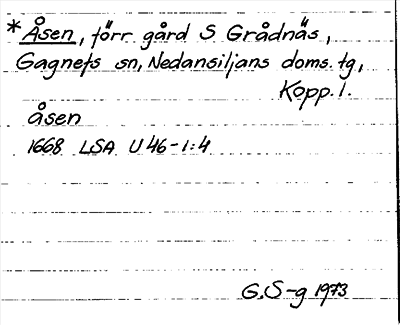 *Åsen, förr. gård S Grådnäs,
Gagnefs sn, Nedansiljans doms. tg,
Kopp. l.
åsen
1668 LSA U 46-1:4
G. S-g 1973